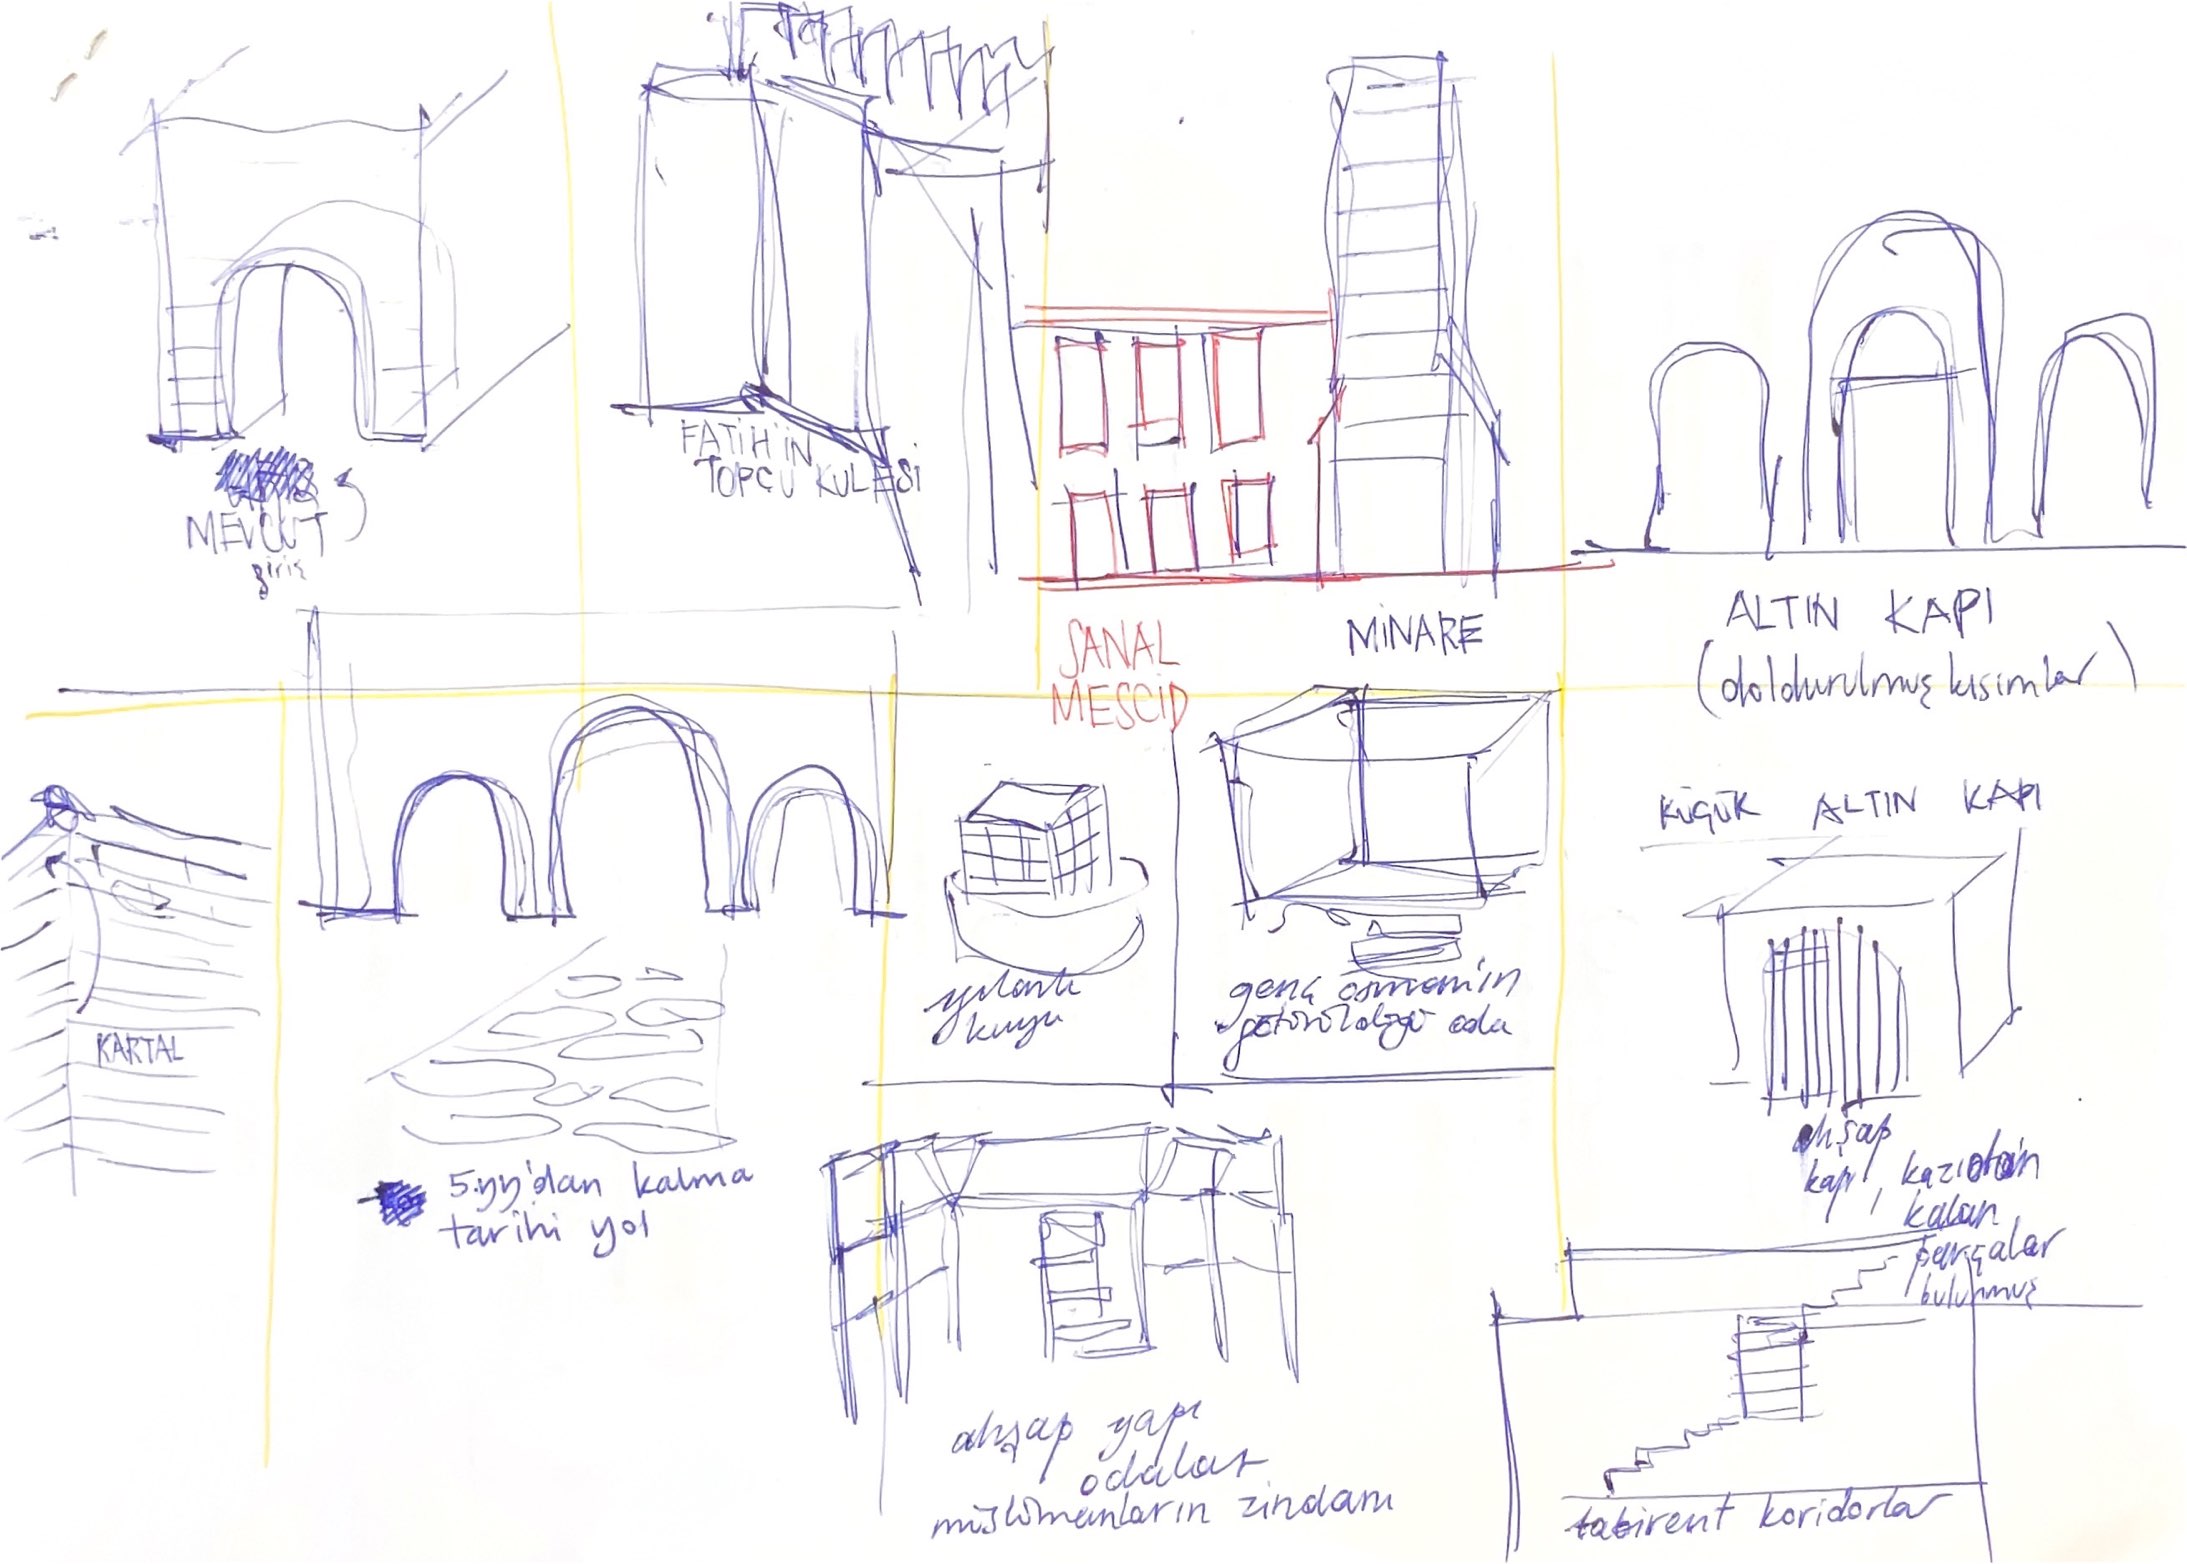 MEVCUT
giriş
FATİH'İN
TOPÇU KULESİ
SANAL
MESCİD
MİNARE
ALTIN KAPI
(doldurulmuş kısımlar)
KARTAL
5.yy'dan kalma
tarihi yol
yılanlı
kuyu
genç osman'ın
götürüldüğü oda
KÜÇÜK ALTIN KAPI
ahşap
kapı, kazıdan
kalan
parçalar
bulunmuş
ahşap yapı
odalar
müslümanların zindanı
labirent koridorlar